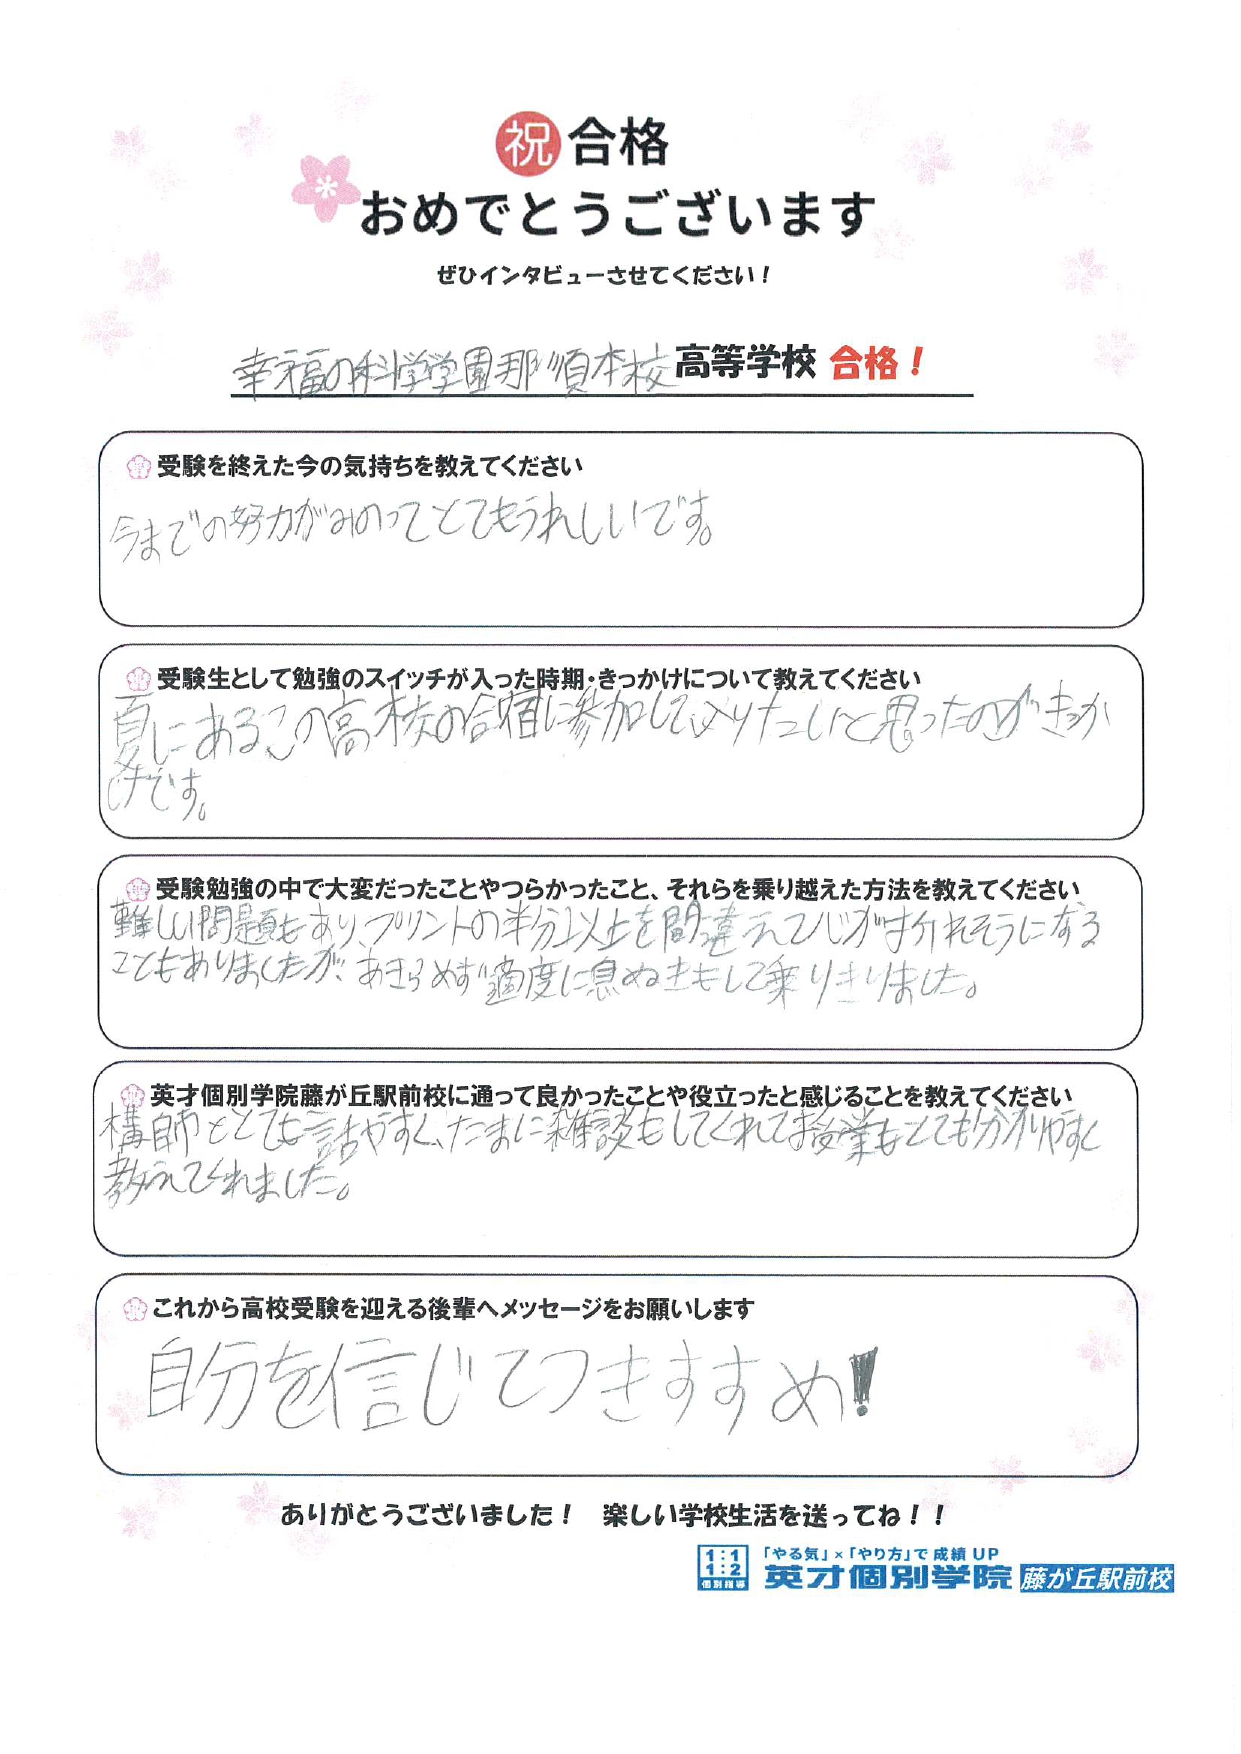 祝 合格
おめでとうございます
ぜひインタビューさせてください！
幸福の科学学園那須本校高等学校 合格！
受験を終えた今の気持ちを教えてください
今までの努力がみのってとてもうれしいです。
受験生として勉強のスイッチが入った時期・きっかけについて教えてください
夏にあるこの高校の合宿に参加して入りたいと思ったのがきっか
けです。
受験勉強の中で大変だったことやつらかったこと、それらを乗り越えた方法を教えてください
難しい問題もあり、プリントの半分以上を間違えて心が折れそうになる
こともありましたが、あきらめず適度に息ぬきもして乗りきりました。
英才個別学院藤が丘駅前校に通って良かったことや役立ったと感じることを教えてください
構師ととても話やすく、たまに雑談もしてくれてお授業もとても分かりやすく
教えてくれました。
これから高校受験を迎える後輩へメッセージをお願いします
自分を信じてつきすすめ！
ありがとうございました！ 楽しい学校生活を送ってね！！
1:1
1:2
個別指導
「やる気」×「やり方」で 成績 UP
英才個別学院 藤が丘駅前校